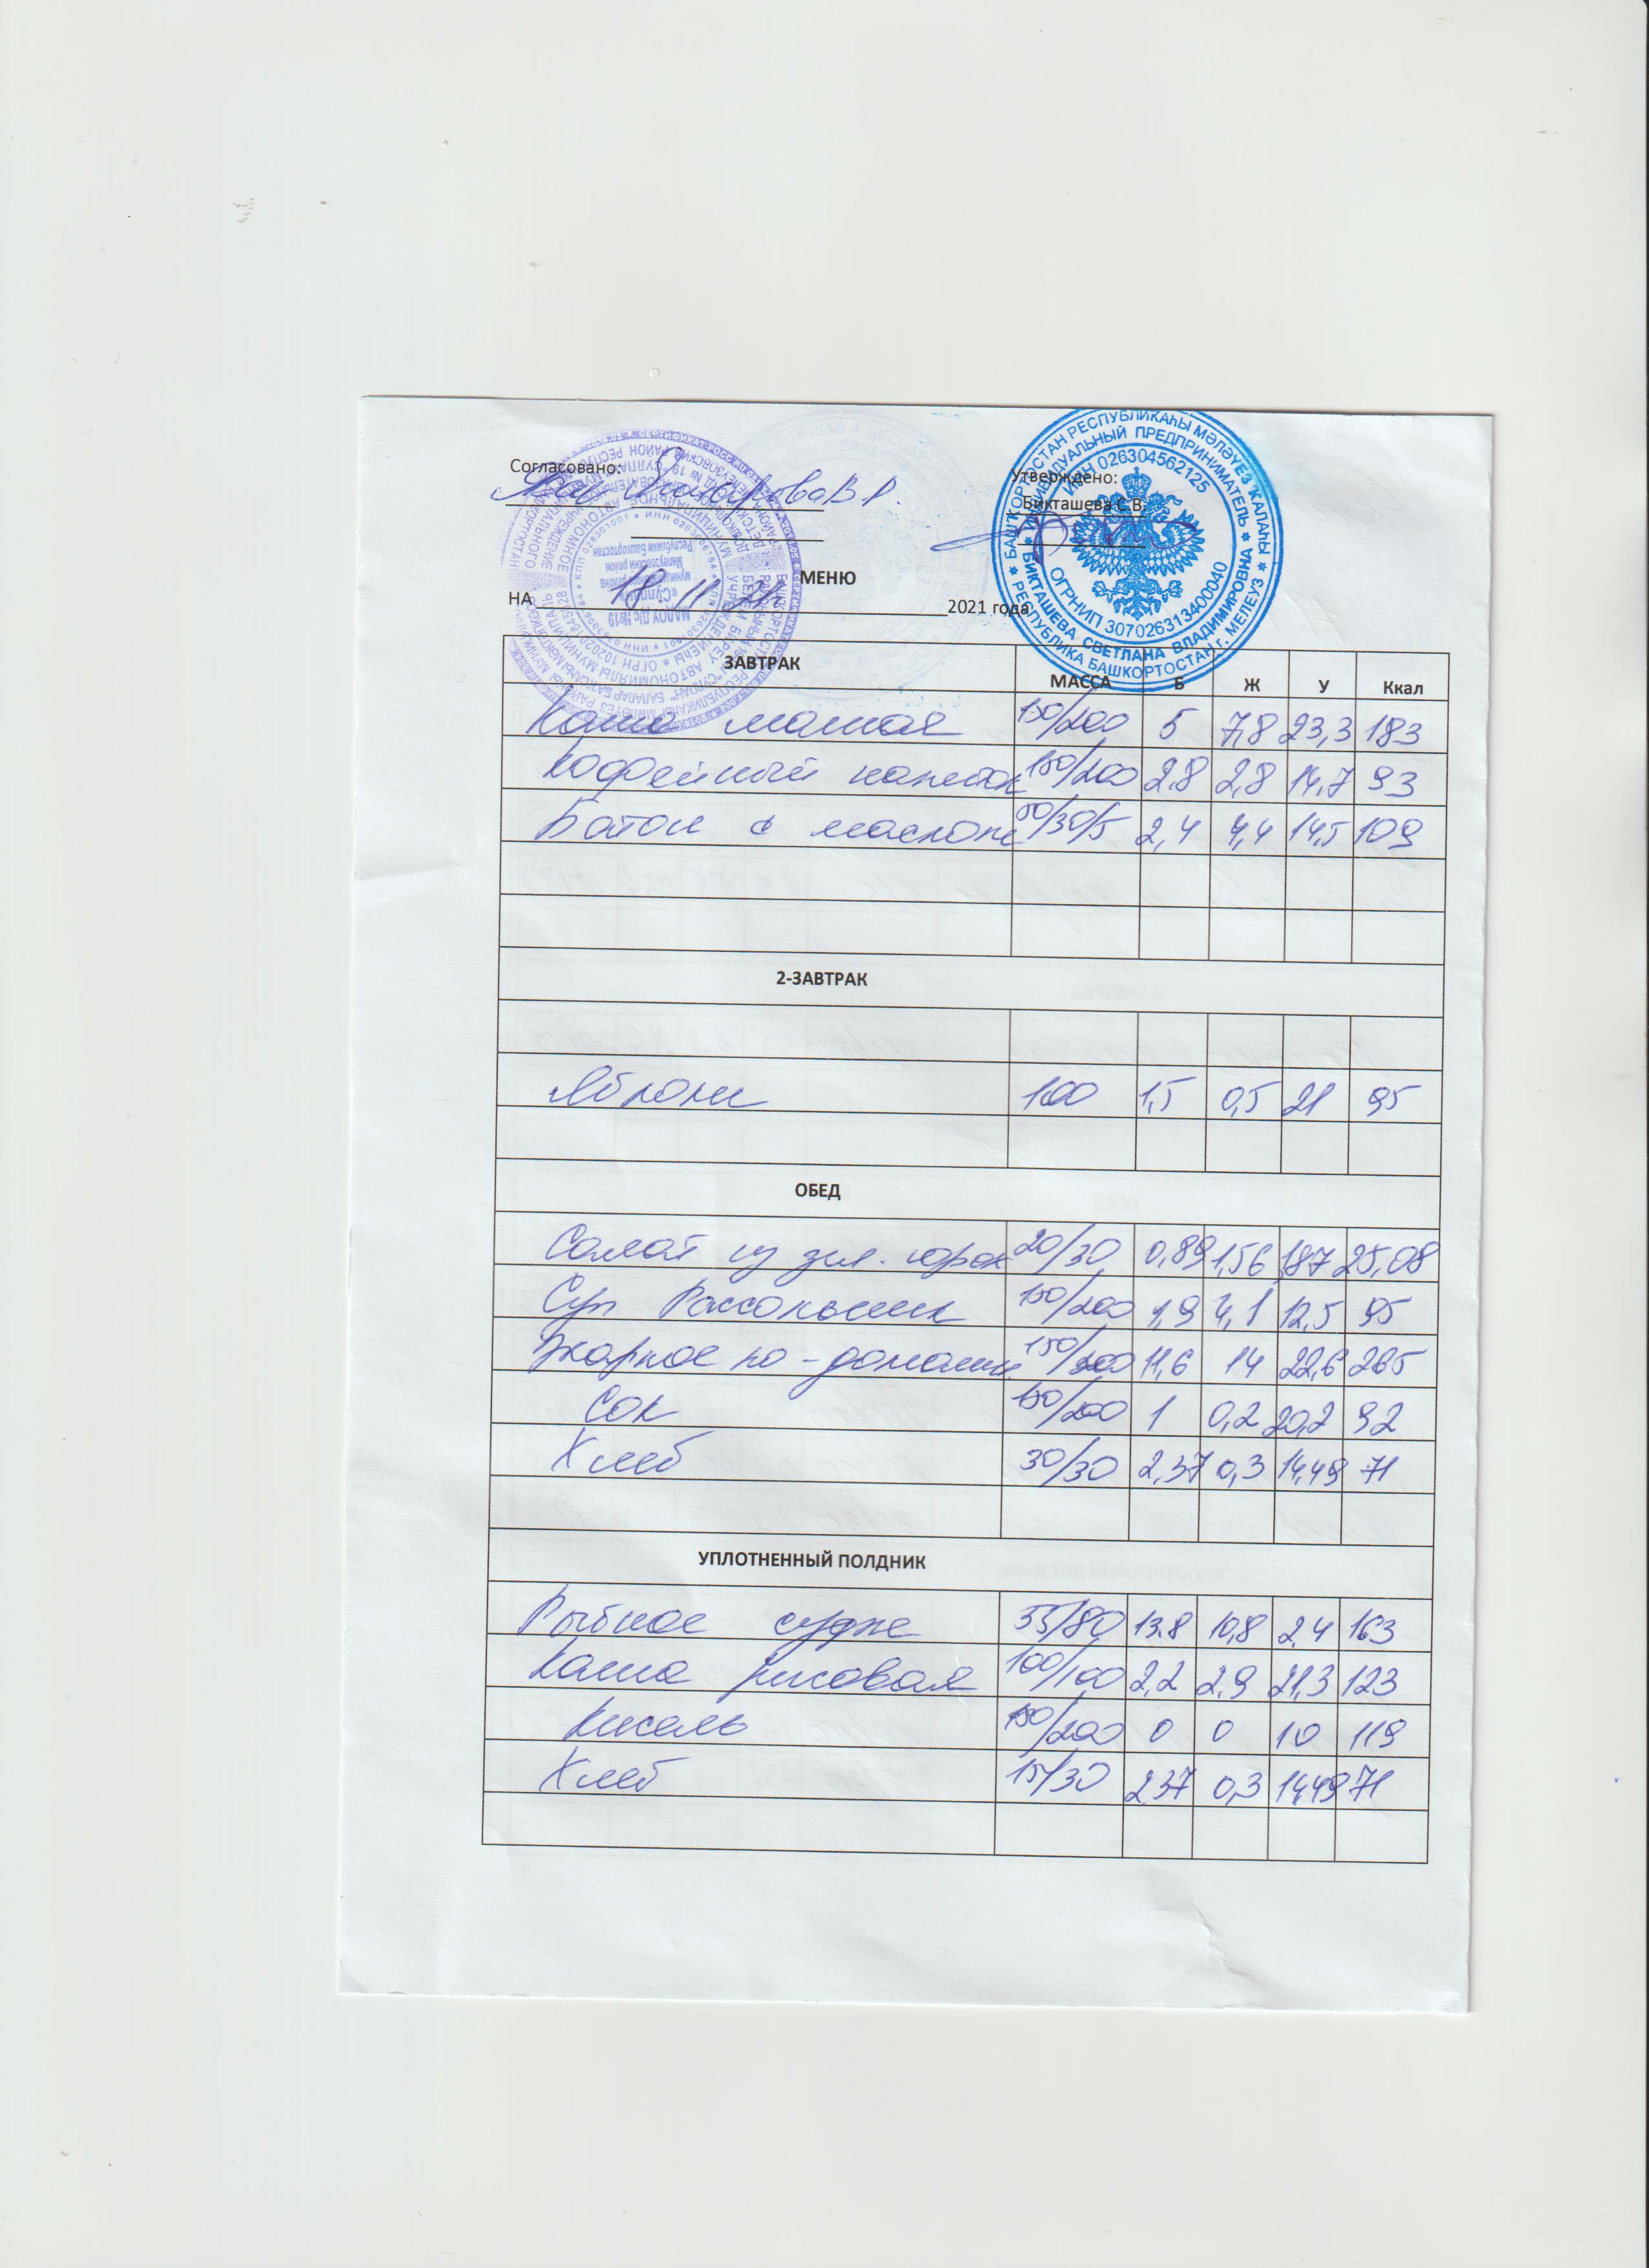 Согласовано:
Утверждено:
Бикташева С.В.
МЕНЮ
НА 18.11.21 2021 года
ЗАВТРАК МАССА Б Ж У Ккал
Каша манная 150/200 5 7,8 23,3 183
Кофейный напиток 150/200 2.8 2,8 14,7 93
Батон с маслом 50/30/5 2,4 4,4 14,5 109
2-ЗАВТРАК
Яблоки 100 1,5 0,5 21 95
ОБЕД
Салат из зел. горош 20/30 0,89 1,56 1,87 25,08
Суп Рассольник 150/200 1,9 4,1 12,5 95
Жаркое по-домашн. 150/200 11,6 14 22,6 265
Сок 150/200 1 0,2 20,2 92
Хлеб 30/30 2,37 0,3 14,49 71
УПЛОТНЕННЫЙ ПОЛДНИК
Рыбное суфле 55/80 13.8 10,8 2,4 163
Каша рисовая 100/100 2,2 2.9 21,3 123
Кисель 150/200 0 0 10 119
Хлеб 15/30 2,37 0,3 14,49 71
БАШҠОРТОСТАН РЕСПУБЛИКАҺЫ МӘЛӘҮЕЗ ҠАЛАҺЫ
РЕСПУБЛИКА БАШКОРТОСТАН г. МЕЛЕУЗ
ИНДИВИДУАЛЬНЫЙ ПРЕДПРИНИМАТЕЛЬ
БИКТАШЕВА СВЕТЛАНА ВЛАДИМИРОВНА
ИНН 026304562125
ОГРНИП 307026313400040